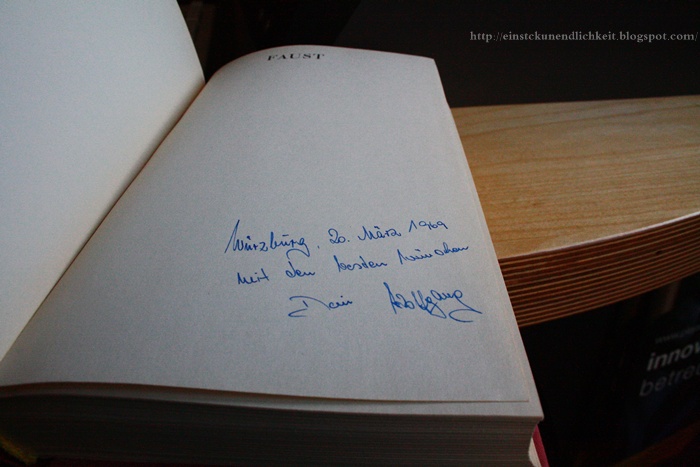 http://einstckunendlichkeit.blogspot.com/
FAUST
Würzburg, 20. März 1969
mit den besten Wünschen
Dein Wolfgang
innov
betre